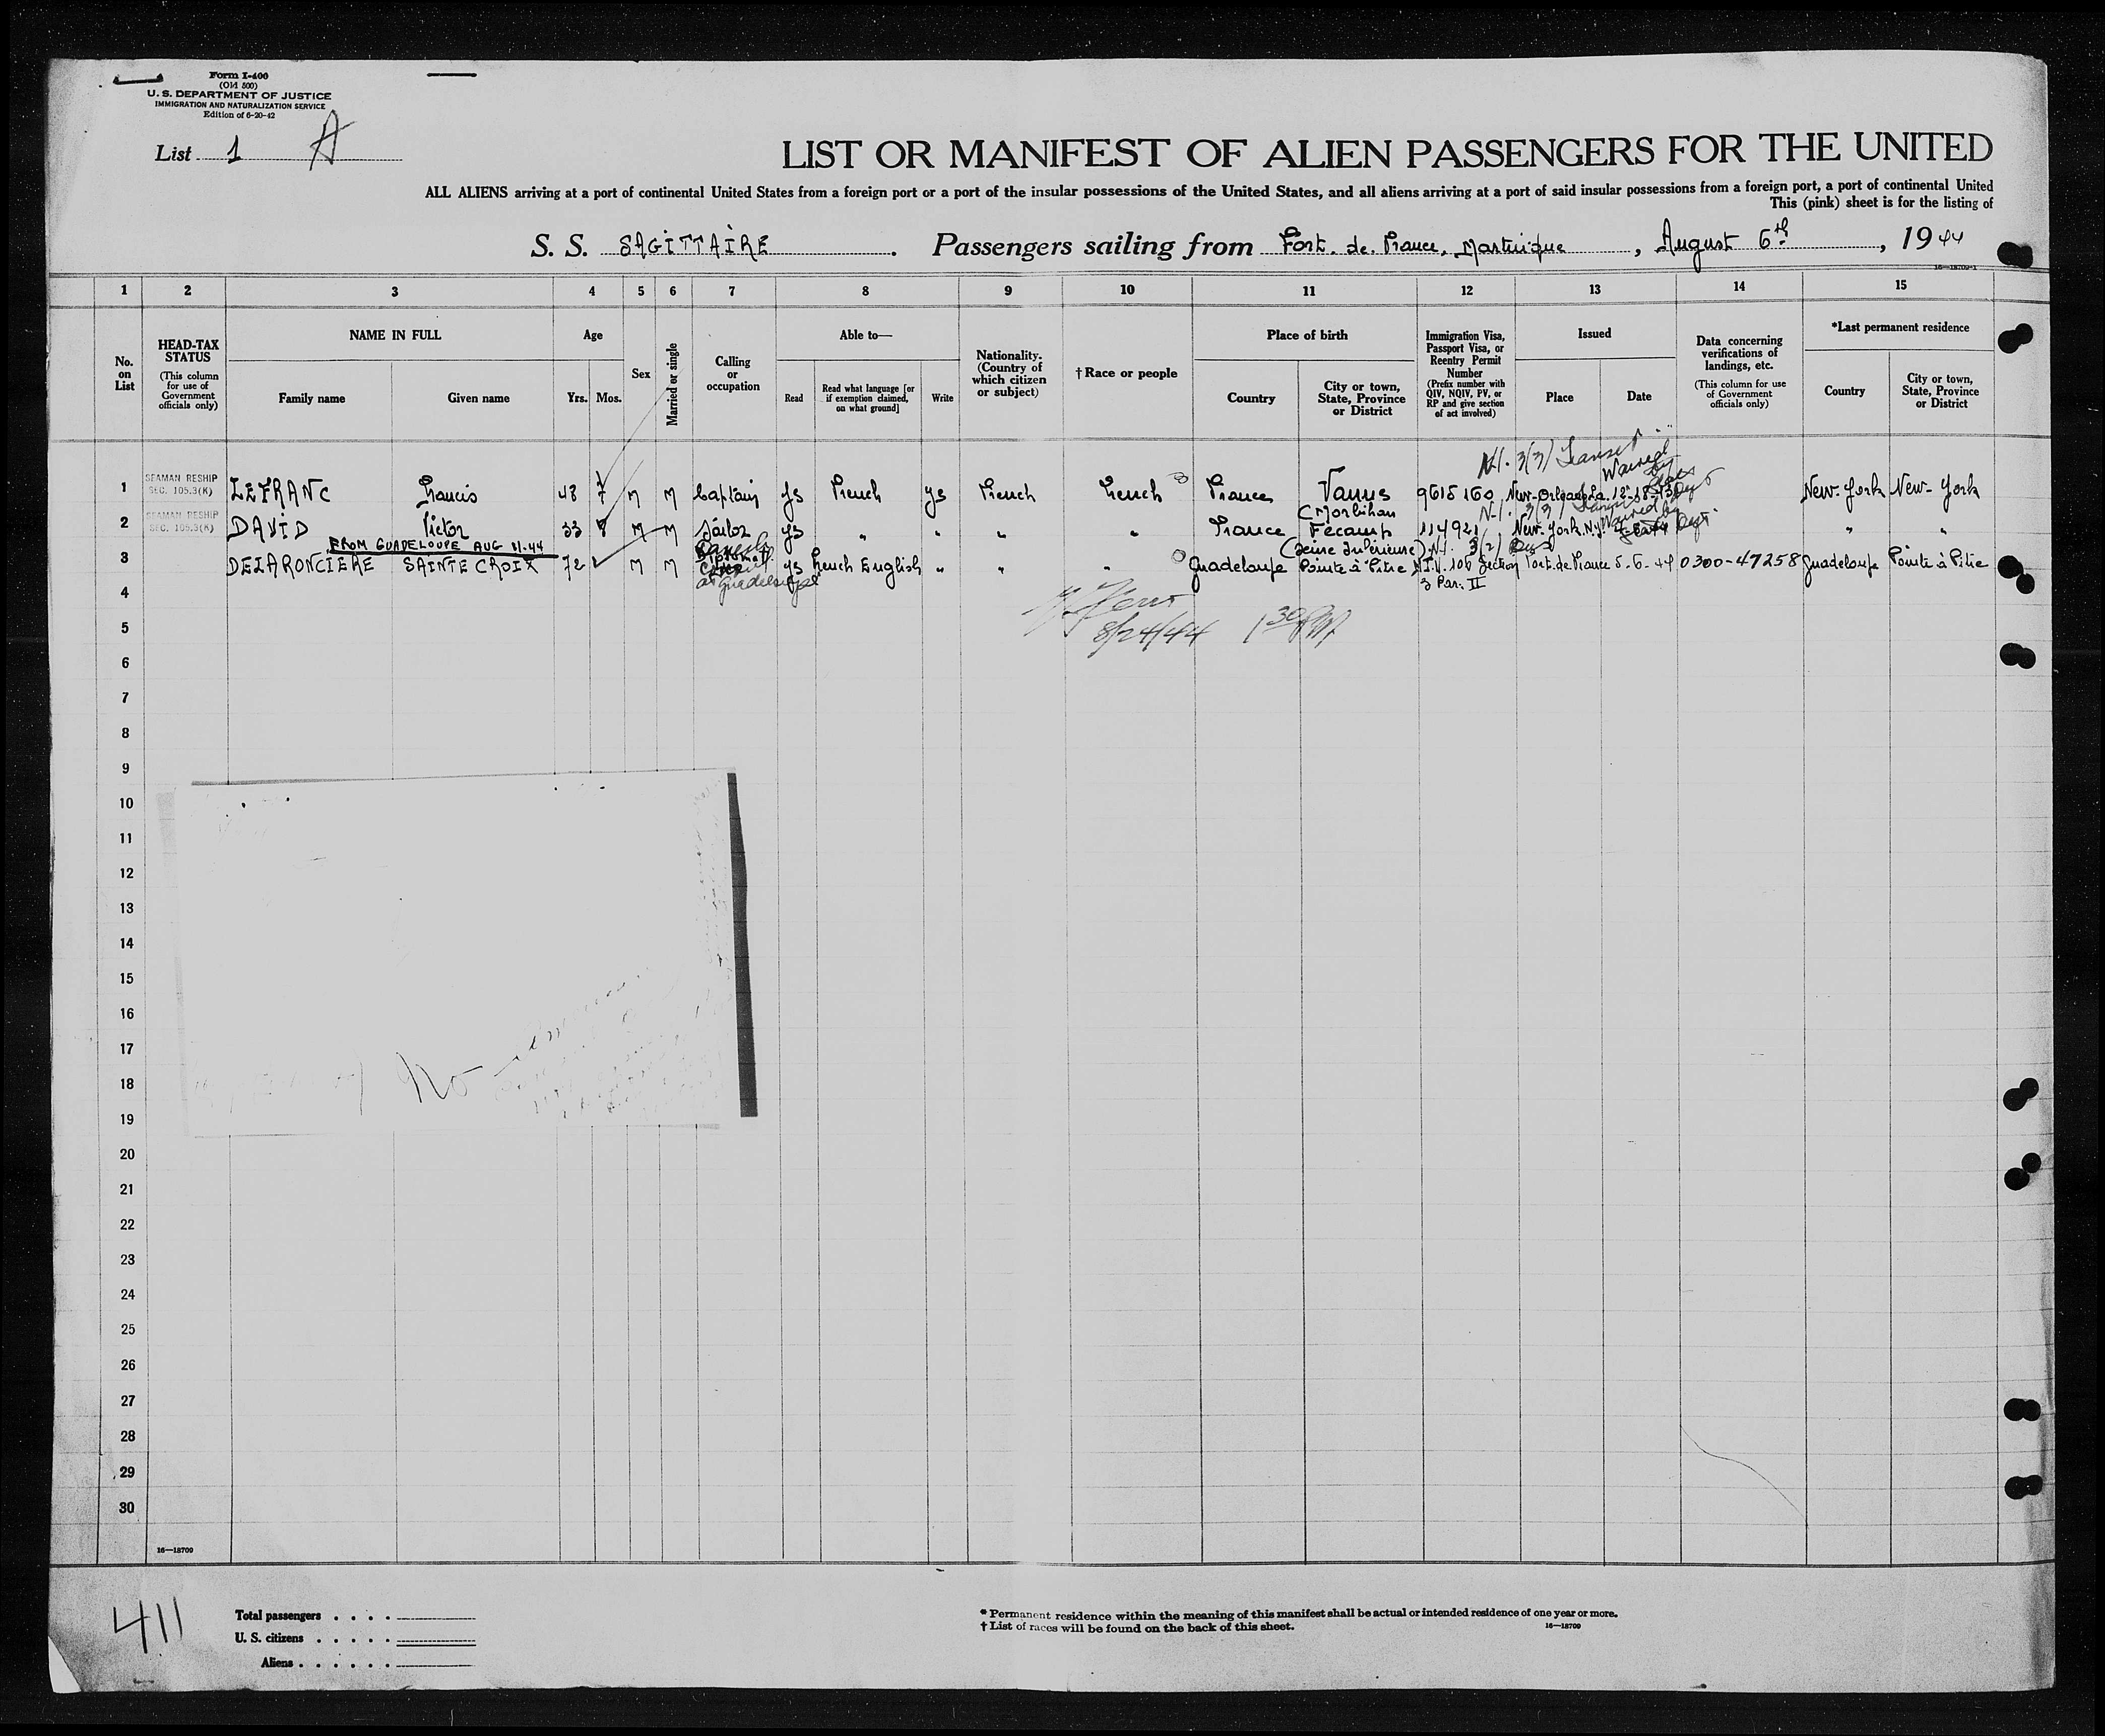 Form I-400
(Old 500)
U. S. DEPARTMENT OF JUSTICE
IMMIGRATION AND NATURALIZATION SERVICE
Edition of 6-20-42
List 1 A
LIST OR MANIFEST OF ALIEN PASSENGERS FOR THE UNITED
ALL ALIENS arriving at a port of continental United States from a foreign port or a port of the insular possessions of the United States, and all aliens arriving at a port of said insular possessions from a foreign port, a port of continental United
This (pink) sheet is for the listing of
S. S. SAGITTAIRE. Passengers sailing from Fort. de. France, Martinique, August 6th, 1944
16—18709-1
1 2 3 4 5 6 7 8 9 10 11 12 13 14 15
No. on List
HEAD-TAX STATUS
(This column for use of Government officials only)
NAME IN FULL
Family name Given name
Age
Yrs. Mos.
Sex
Married or single
Calling or occupation
Able to—
Read
Read what language [or if exemption claimed, on what ground]
Write
Nationality. (Country of which citizen or subject)
† Race or people
Place of birth
Country
City or town, State, Province or District
Immigration Visa, Passport Visa, or Reentry Permit Number
(Prefix number with QIV, NQIV, PV, or RP and give section of act involved)
Issued
Place Date
Data concerning verifications of landings, etc.
(This column for use of Government officials only)
*Last permanent residence
Country
City or town, State, Province or District
3(3) Transit
Waived by
1 SEAMAN RESHIP SEC. 105.3(K) LEFRANC Francis 48 7 M M Captain yes French yes French French France Vannes 9615160 New-Orleans La. New-York New-York
(Morbihan
2 SEAMAN RESHIP SEC. 105.3(K) DAVID Victor 33 8 M M Sailor yes " " " " France Fécamp 114921 New-York N.Y. " "
FROM GUADELOUPE AUG 11-44
(Seine Inférieure) 3(2)
3 DELARONCIERE SAINTE CROIX 72 M M yes French English " " " Guadeloupe Pointe à Pitre 106 Section Fort. de France 5-6-44 0300-47258 Guadeloupe Pointe à Pitre
at Guadeloupe
3 Par. II
4
8/24/44 1 30 PM
5
6
7
8
9
10
11
12
13
14
15
16
17
No
18
19
20
21
22
23
24
25
26
27
28
29
30
16—18709
411
Total passengers
U. S. citizens
Aliens
* Permanent residence within the meaning of this manifest shall be actual or intended residence of one year or more.
† List of races will be found on the back of this sheet.
16—18709